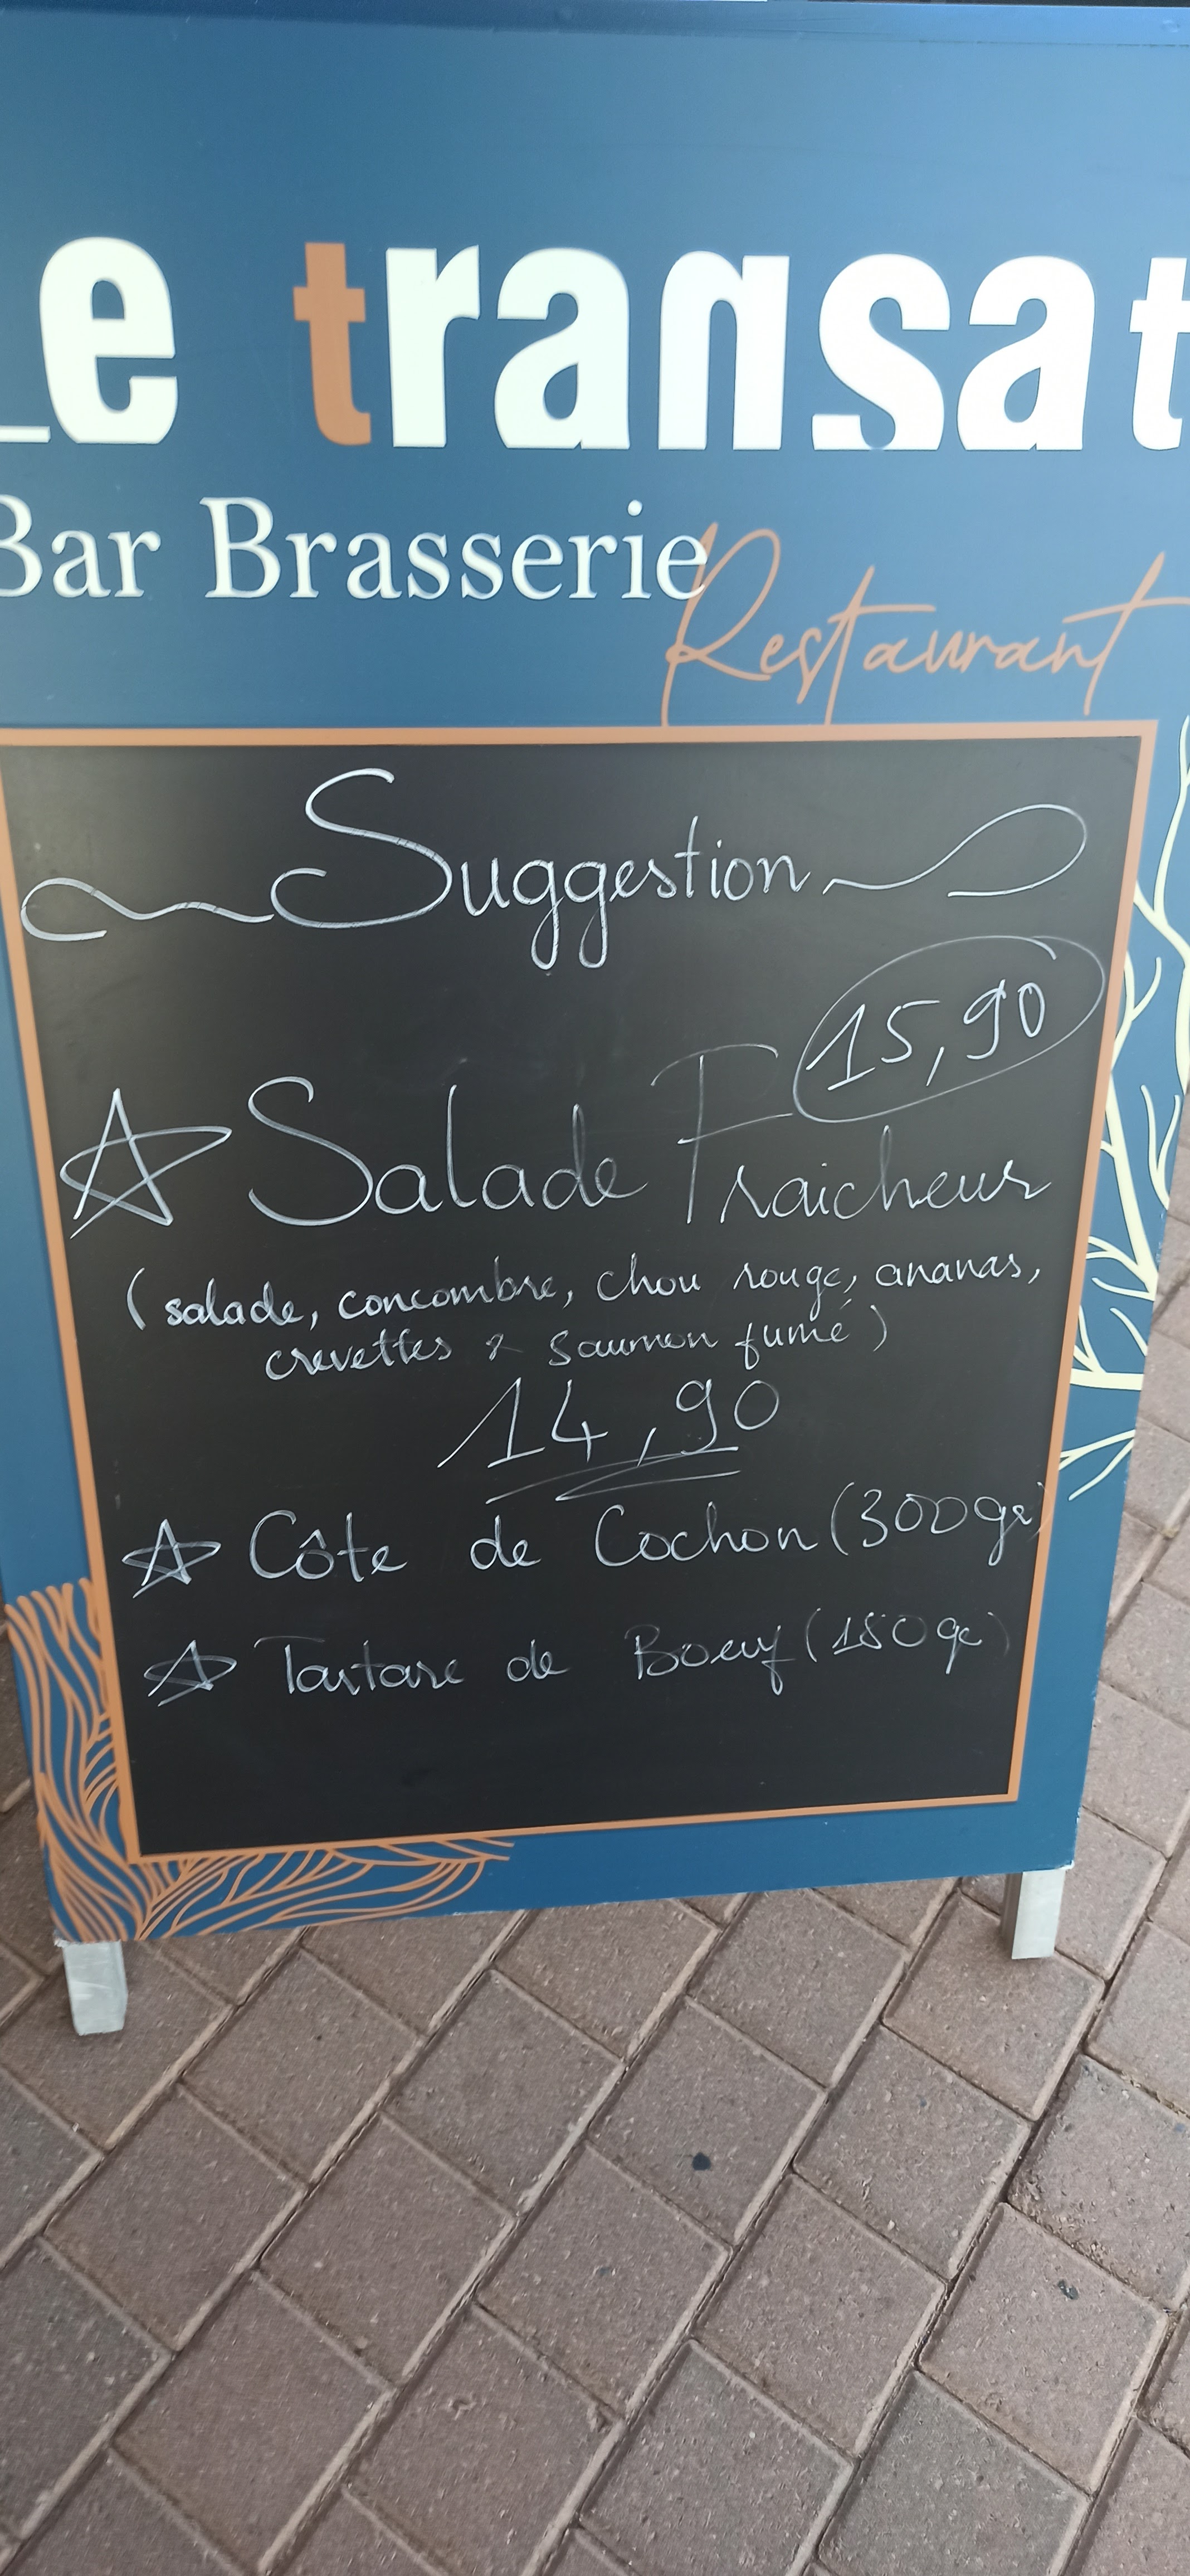 Le transat
Bar Brasserie
Restaurant
Suggestion
15,90
Salade Fraicheur
(salade, concombre, chou rouge, ananas,
crevettes & saumon fumé)
14,90
Côte de Cochon (300gr)
Tartare de Boeuf (180gr)